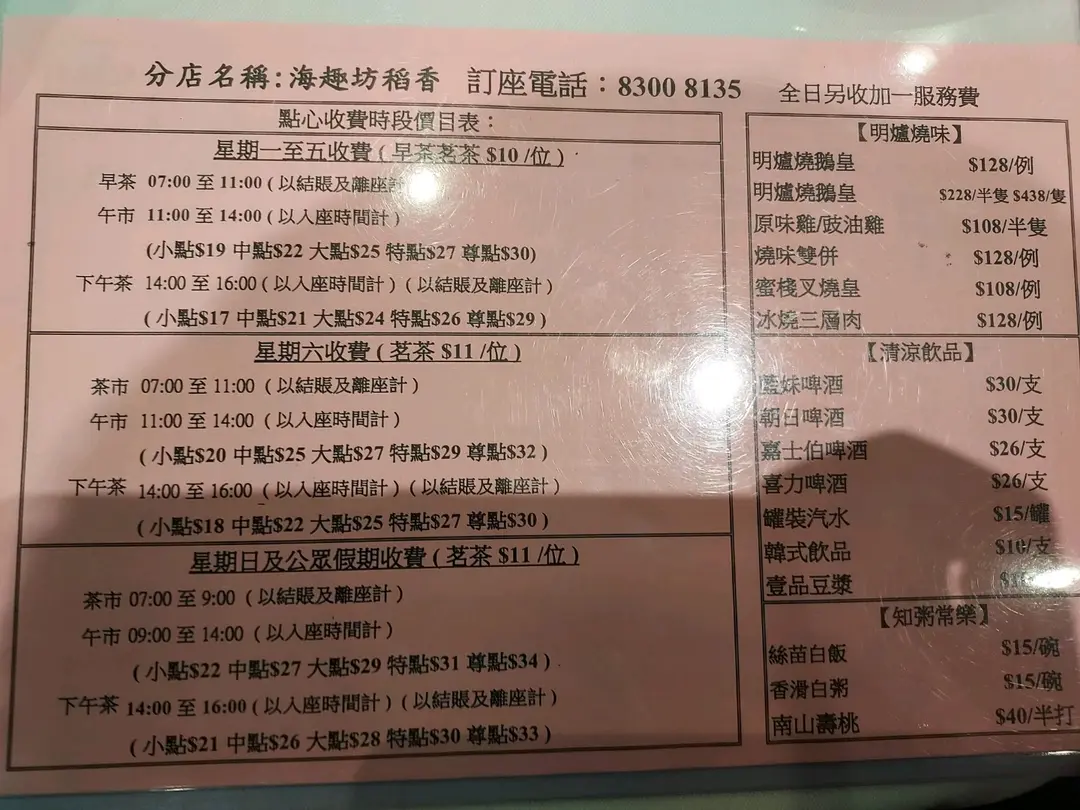 分店名稱:海趣坊稻香 訂座電話：8300 8135 全日另收加一服務費
點心收費時段價目表：
星期一至五收費 ( 早茶茗茶 $10 /位 )
早茶 07:00 至 11:00 ( 以結賬及離座計
午市 11:00 至 14:00 ( 以入座時間計 )
(小點$19 中點$22 大點$25 特點$27 尊點$30)
下午茶 14:00 至 16:00 ( 以入座時間計 ) ( 以結賬及離座計 )
( 小點$17 中點$21 大點$24 特點$26 尊點$29 )
星期六收費 ( 茗茶 $11 /位 )
茶市 07:00 至 11:00 ( 以結賬及離座計 )
午市 11:00 至 14:00 ( 以入座時間計 )
( 小點$20 中點$25 大點$27 特點$29 尊點$32 )
下午茶 14:00 至 16:00 ( 以入座時間計 ) ( 以結賬及離座計 )
( 小點$18 中點$22 大點$25 特點$27 尊點$30 )
星期日及公眾假期收費 ( 茗茶 $11 /位 )
茶市 07:00 至 9:00 ( 以結賬及離座計 )
午市 09:00 至 14:00 ( 以入座時間計 )
( 小點$22 中點$27 大點$29 特點$31 尊點$34 )
下午茶 14:00 至 16:00 ( 以入座時間計 ) ( 以結賬及離座計 )
( 小點$21 中點$26 大點$28 特點$30 尊點$33 )
【明爐燒味】
明爐燒鵝皇 $128/例
明爐燒鵝皇 $228/半隻 $438/隻
原味雞/豉油雞 $108/半隻
燒味雙併 $128/例
蜜棧叉燒皇 $108/例
冰燒三層肉 $128/例
【清涼飲品】
藍妹啤酒 $30/支
朝日啤酒 $30/支
嘉士伯啤酒 $26/支
喜力啤酒 $26/支
罐裝汽水 $15/罐
韓式飲品 $10/支
壹品豆漿
【知粥常樂】
絲苗白飯 $15/碗
香滑白粥 $15/碗
南山壽桃 $40/半打